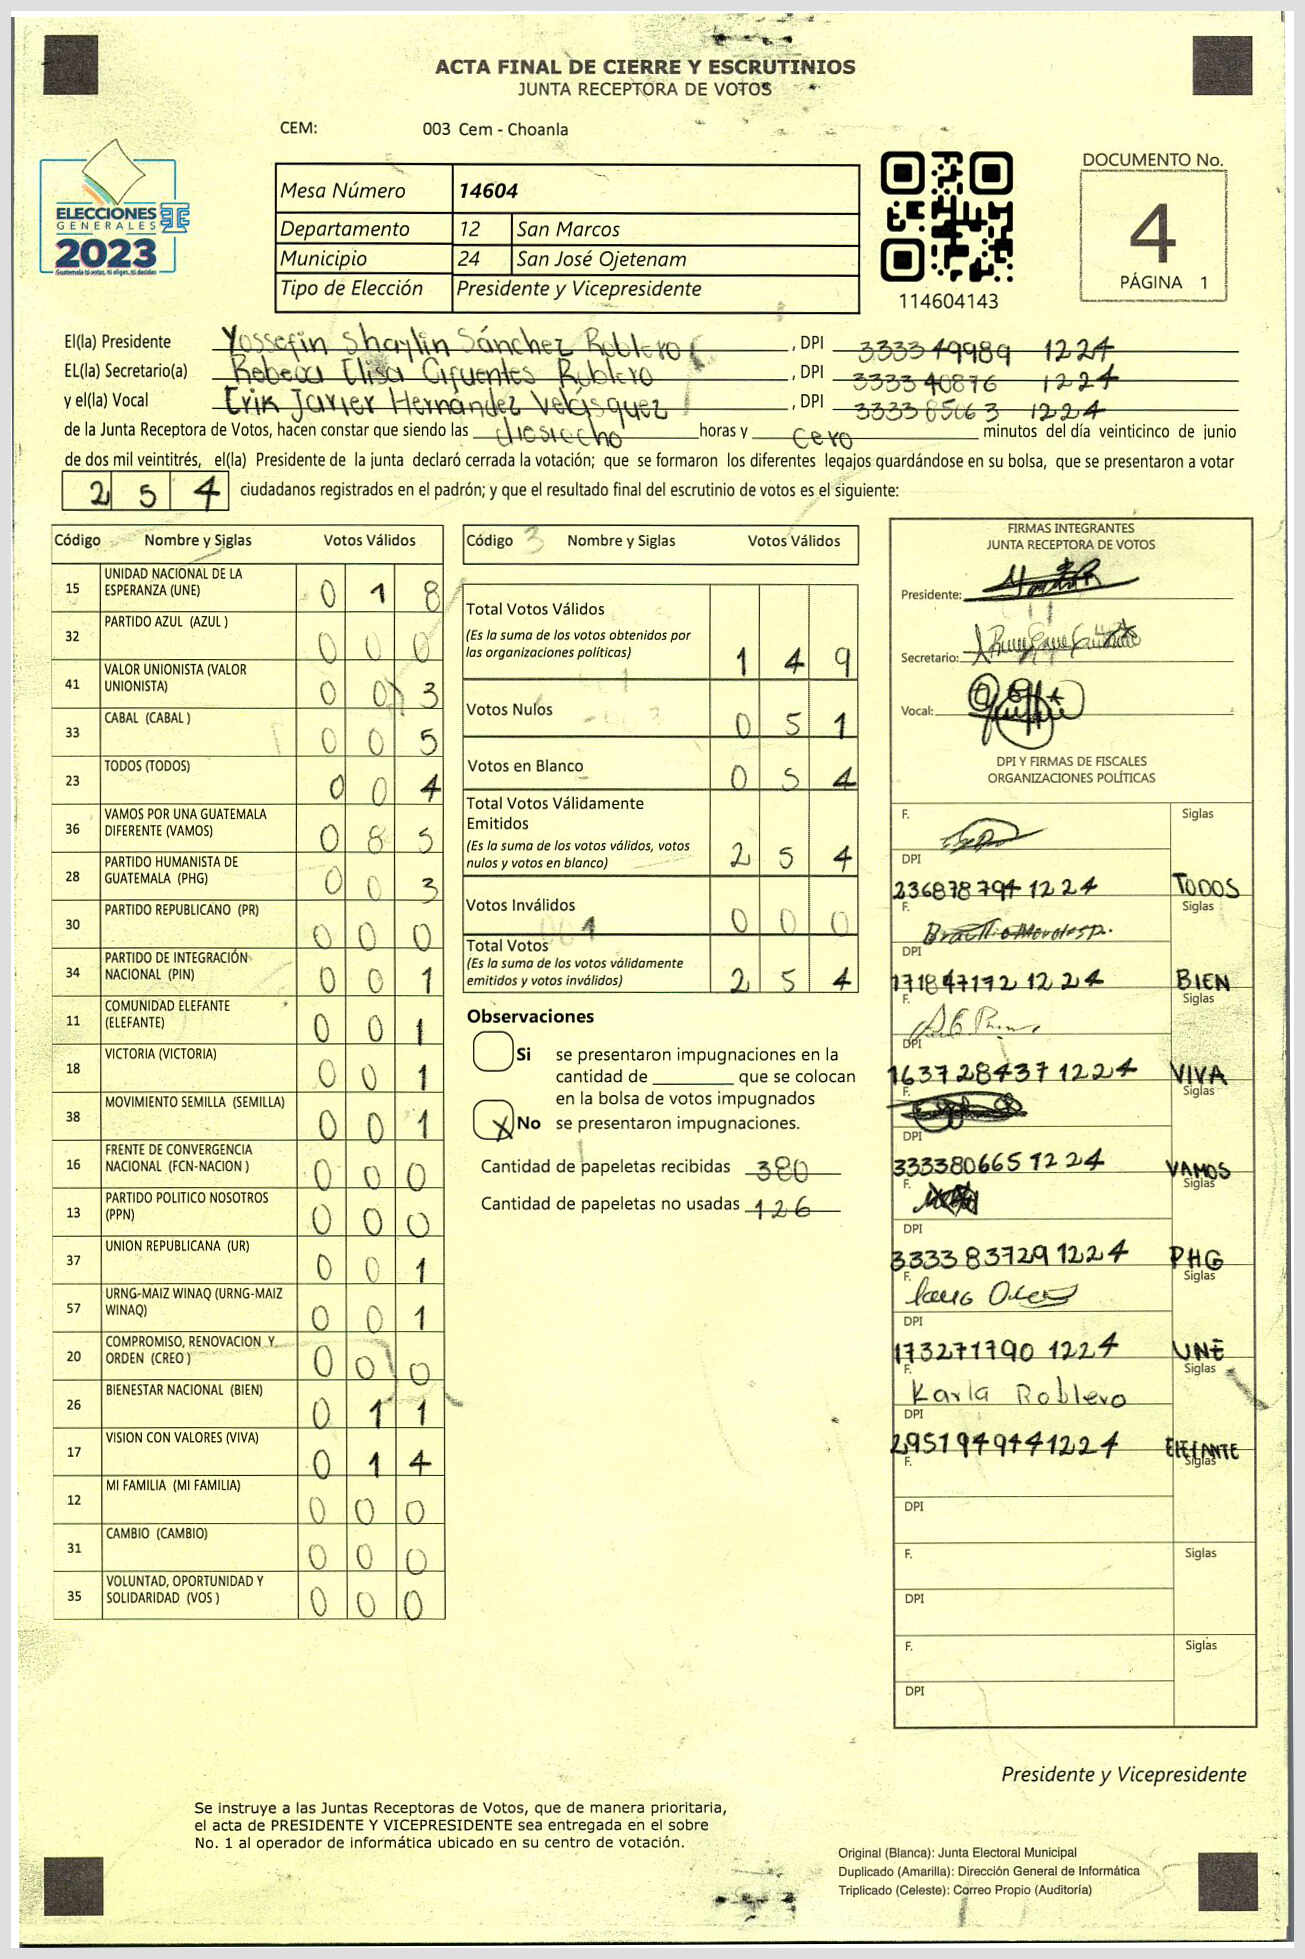 ACTA FINAL DE CIERRE Y ESCRUTINIOS
JUNTA RECEPTORA DE VOTOS
CEM: 003 Cem - Choanla
ELECCIONES
GENERALES
2023
Mesa Número 14604
Departamento 12 San Marcos
Municipio 24 San José Ojetenam
Tipo de Elección Presidente y Vicepresidente
114604143
DOCUMENTO No.
4
PÁGINA 1
El(la) Presidente Yossefin Shaylin Sánchez Roblero , DPI 3333 49989 1224
EL(la) Secretario(a) Rebeca Elisa Cifuentes Roblero , DPI 3333 40876 1224
y el(la) Vocal Erik Javier Hernández Velásquez , DPI 3333 85063 1224
de la Junta Receptora de Votos, hacen constar que siendo las diesiocho horas y cero minutos del día veinticinco de junio
de dos mil veintitrés, el(la) Presidente de la junta declaró cerrada la votación; que se formaron los diferentes legajos guardándose en su bolsa, que se presentaron a votar
2 5 4 ciudadanos registrados en el padrón; y que el resultado final del escrutinio de votos es el siguiente:
Código Nombre y Siglas Votos Válidos
15 UNIDAD NACIONAL DE LA ESPERANZA (UNE) 0 1 8
32 PARTIDO AZUL (AZUL ) 0 0 0
41 VALOR UNIONISTA (VALOR UNIONISTA) 0 0 3
33 CABAL (CABAL ) 0 0 5
23 TODOS (TODOS) 0 0 4
36 VAMOS POR UNA GUATEMALA DIFERENTE (VAMOS) 0 8 5
28 PARTIDO HUMANISTA DE GUATEMALA (PHG) 0 0 3
30 PARTIDO REPUBLICANO (PR) 0 0 0
34 PARTIDO DE INTEGRACIÓN NACIONAL (PIN) 0 0 1
11 COMUNIDAD ELEFANTE (ELEFANTE) 0 0 1
18 VICTORIA (VICTORIA) 0 0 1
38 MOVIMIENTO SEMILLA (SEMILLA) 0 0 1
16 FRENTE DE CONVERGENCIA NACIONAL (FCN-NACION ) 0 0 0
13 PARTIDO POLITICO NOSOTROS (PPN) 0 0 0
37 UNION REPUBLICANA (UR) 0 0 1
57 URNG-MAIZ WINAQ (URNG-MAIZ WINAQ) 0 0 1
20 COMPROMISO, RENOVACION Y ORDEN (CREO ) 0 0 0
26 BIENESTAR NACIONAL (BIEN) 0 1 1
17 VISION CON VALORES (VIVA) 0 1 4
12 MI FAMILIA (MI FAMILIA) 0 0 0
31 CAMBIO (CAMBIO) 0 0 0
35 VOLUNTAD, OPORTUNIDAD Y SOLIDARIDAD (VOS ) 0 0 0
Código 3 Nombre y Siglas Votos Válidos
Total Votos Válidos
(Es la suma de los votos obtenidos por
las organizaciones políticas) 1 4 9
Votos Nulos 0 5 1
Votos en Blanco 0 5 4
Total Votos Válidamente
Emitidos
(Es la suma de los votos válidos, votos
nulos y votos en blanco) 2 5 4
Votos Inválidos 0 0 0
Total Votos
(Es la suma de los votos válidamente
emitidos y votos inválidos) 2 5 4
Observaciones
Si se presentaron impugnaciones en la
cantidad de ________ que se colocan
en la bolsa de votos impugnados
X No se presentaron impugnaciones.
Cantidad de papeletas recibidas 380
Cantidad de papeletas no usadas 126
FIRMAS INTEGRANTES
JUNTA RECEPTORA DE VOTOS
Presidente:
Secretario:
Vocal:
DPI Y FIRMAS DE FISCALES
ORGANIZACIONES POLÍTICAS
F. Siglas
DPI
236878794 1224 TODOS
F. Siglas
DPI
171847172 1224 BIEN
F. Siglas
DPI
1637 28437 1224 VIVA
F. Siglas
DPI
333380665 1224 VAMOS
F. Siglas
DPI
3333 83729 1224 PHG
F. Siglas
DPI
173271790 1224 UNE
F. Karla Roblero Siglas
DPI
295194944 1224 ELEFANTE
F. Siglas
DPI
F. Siglas
DPI
F. Siglas
DPI
Presidente y Vicepresidente
Se instruye a las Juntas Receptoras de Votos, que de manera prioritaria,
el acta de PRESIDENTE Y VICEPRESIDENTE sea entregada en el sobre
No. 1 al operador de informática ubicado en su centro de votación.
Original (Blanca): Junta Electoral Municipal
Duplicado (Amarilla): Dirección General de Informática
Triplicado (Celeste): Correo Propio (Auditoría)